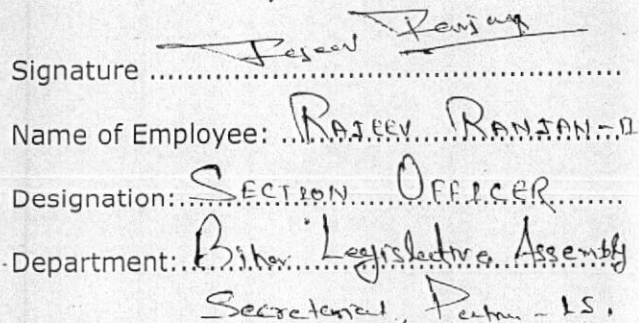 Signature Rajeev Ranjan
Name of Employee: RAJEEV RANJAN-II
Designation: SECTION OFFICER
Department: Bihar Legislative Assembly
Secretariat, Patna-15.